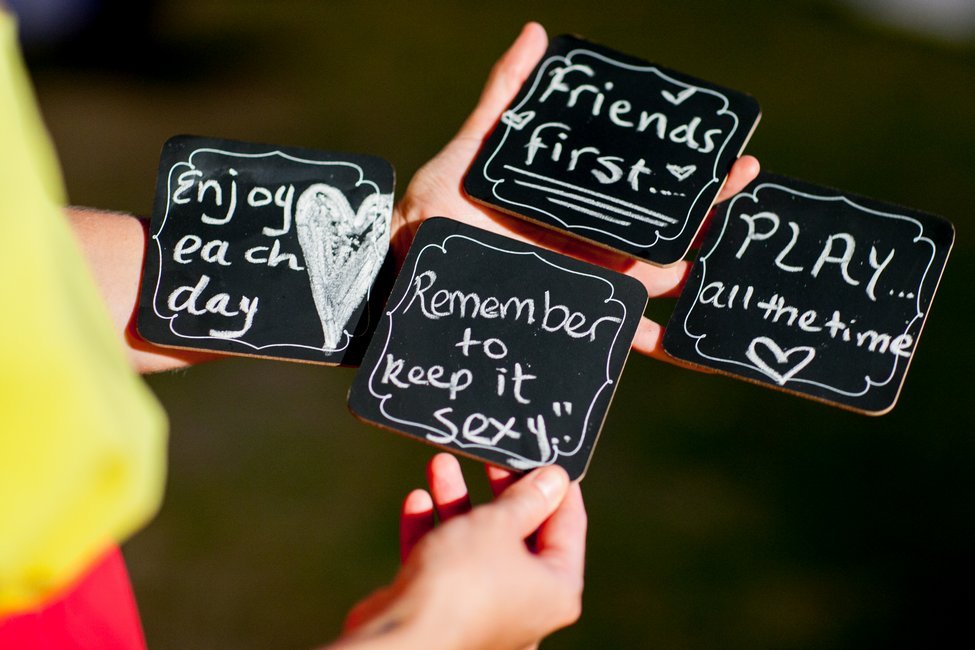 Enjoy
each
day
Friends
first.....
Remember
to
keep it
sexy..
PLAY...
all the time